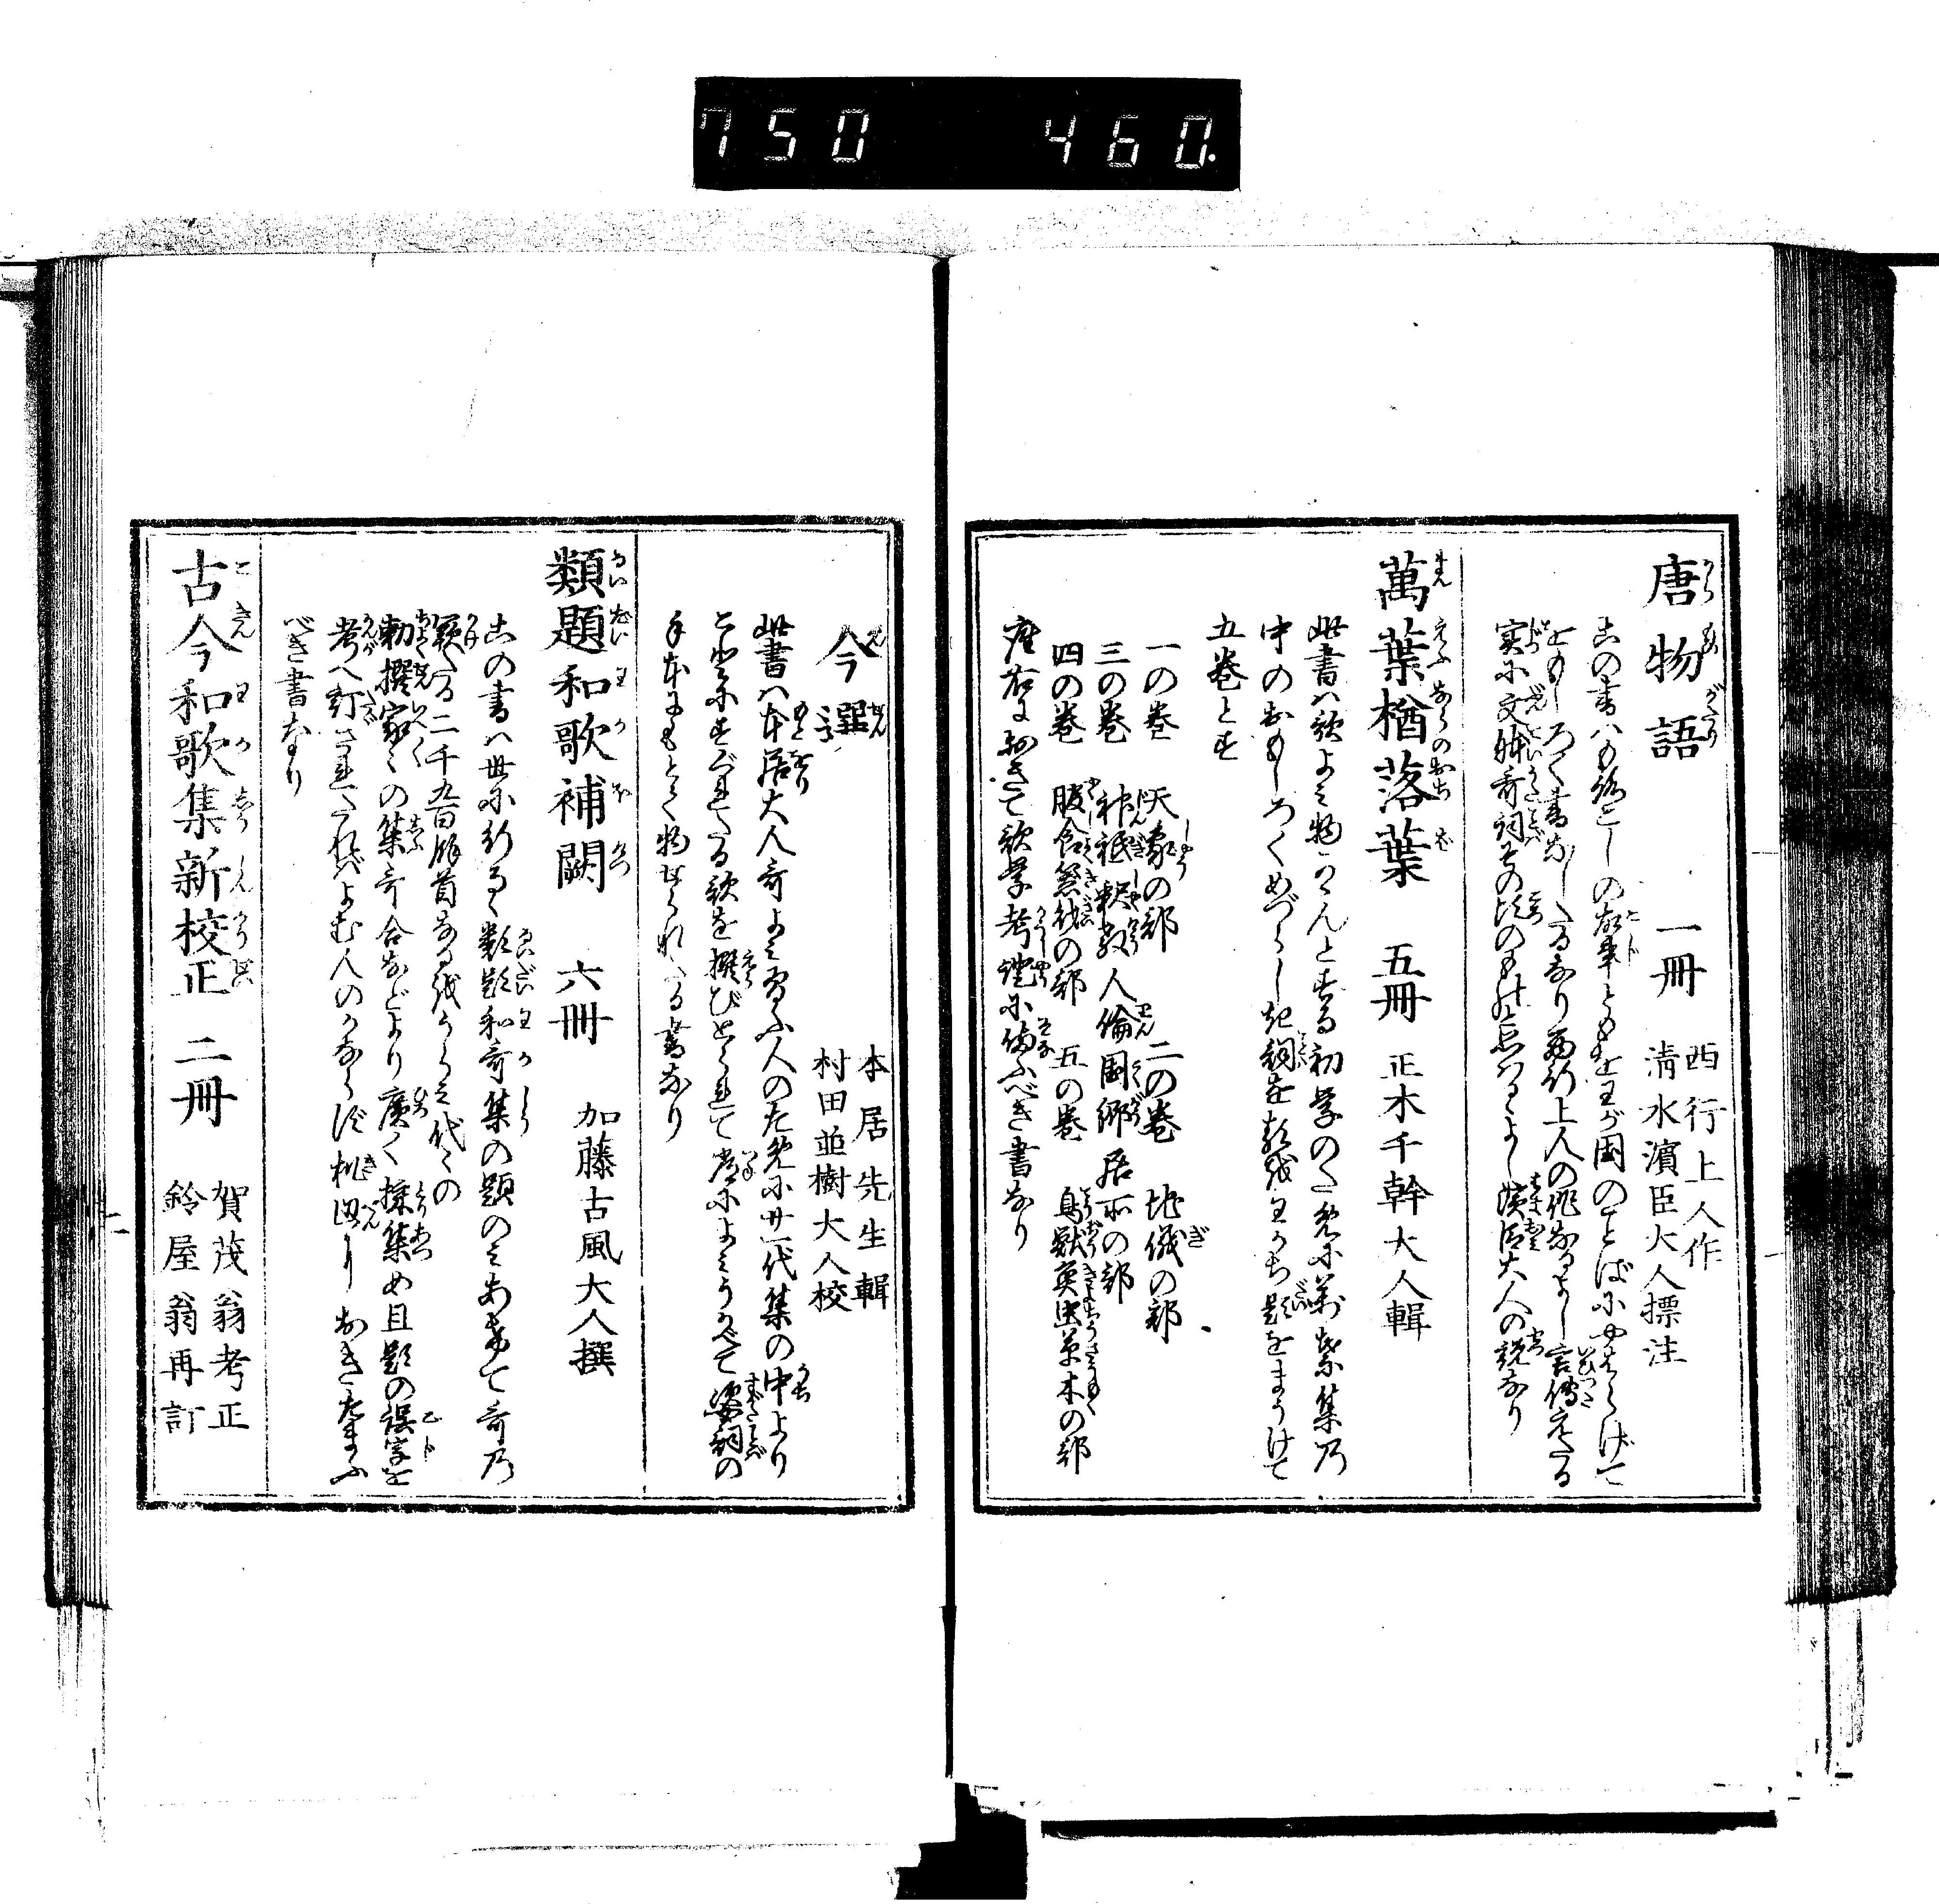 750 460.
唐物語 一冊 西行上人作
清水濱臣大人標注
この書はもろこしの故事どもをわが国のことばにやはらげて
おもしろく書なしたるなり西行上人の作なるよし言傳えたる
実に文躰哥詞その頃のものと
濱臣大人の説なり
萬葉楢落葉 五冊 正木千幹大人輯
此書は歌よみ物かゝんとする初学のために萬葉集乃
中のおもしろくめづらしき詞を部類わかち題をまうけて
五巻とす
一の巻 天象の部 二の巻 地儀の部
三の巻 神祇釈教人倫国郷居所の部
四の巻 服食器財の部 五の巻 鳥獣魚虫草木の部
座右におきて歌学考證に備ふべき書なり
今選 本居先生輯
村田並樹大人校
此書は本居大人哥よみ習ふ人のために廿一代集の中より
ことにすぐれたる歌を撰びとられて常によみうかべて姿詞の
手本にもとて物せられたる書なり
類題和歌補闕 六冊 加藤古風大人撰
この書は世に行るゝ類題和哥集の題のみあげて哥乃
闕たる二千九百餘首なるをうらみ代々の
勅撰家々の集哥合などより廣く採集め且題の誤字を
考へ訂されたればよむ人のかならず机辺におきたまふ
べき書なり
古今和歌集新校正 二冊 賀茂翁考正
鈴屋翁再訂